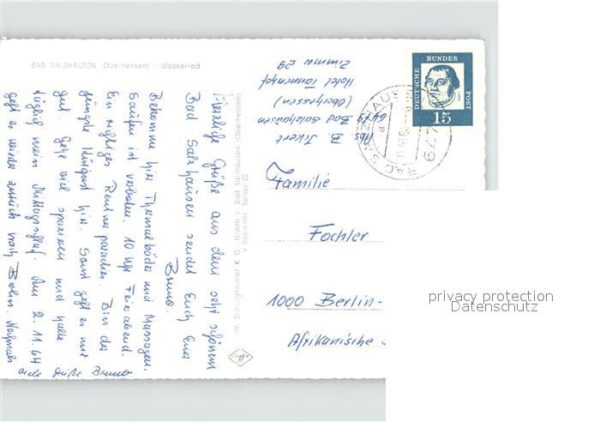 BAD SALZHAUSEN (Oberhessen) - Wasserrad
Herzliche Grüße aus dem sehr schönen
Bad Salzhausen sendet Euch Euer
Bruno.
Bekomme hier Thermalbäder und Massagen.
Saufen ist verboten. 10 Uhr Feierabend.
Ein richtiges Rentner paradies. Bin der
jüngste hier. Sonst geht es mir
gut gehe viel spazieren und halte
mein Mittagsschlaf. Am 2.11.64
geht es wieder zurück nach Berlin. Nochmals
viele Grüße Bruno
Abs. B.
6479 Bad Salzhausen
(Oberhessen)
Hotel Tannenhof
Zimmer 29
DEUTSCHE BUNDES POST
15
6479 BAD SALZHAUSEN
Familie
Fochler
1000 Berlin-
Afrikanische
privacy protection
Datenschutz